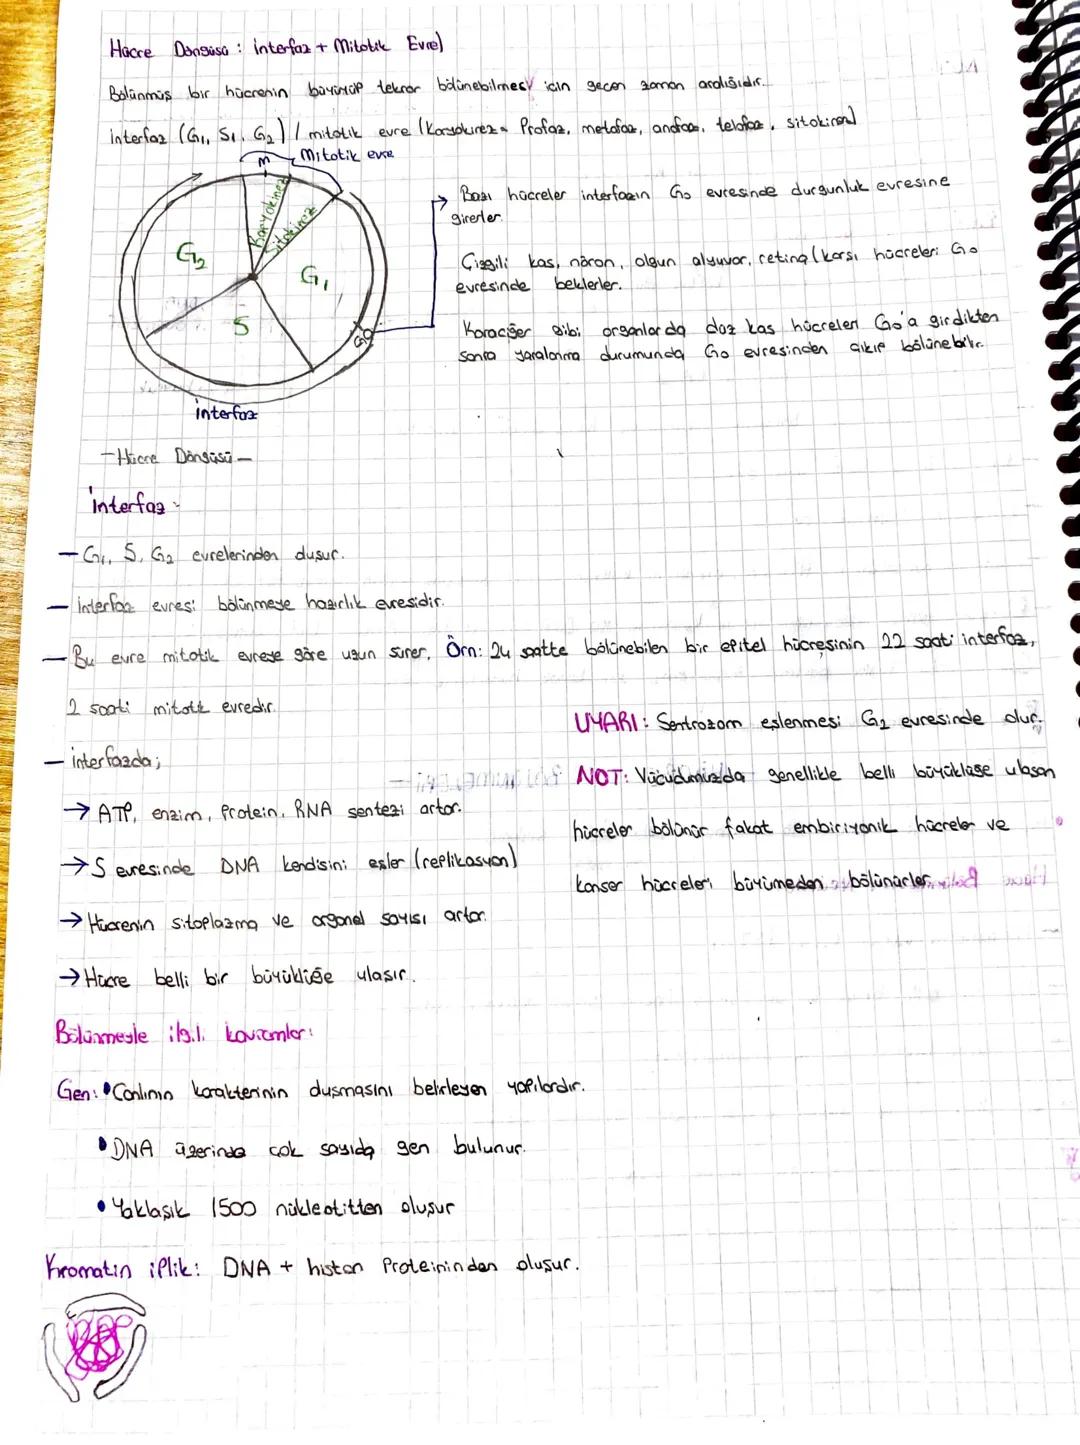 Hücre Döngüsü : interfaz + Mitotik Evre)
Bölünmüş bir hücrenin büyüyüp tekrar bölünebilmesi için geçen zaman aralığıdır.
interfaz (G1, S1, G2) / mitotik evre (Karyokinez = Profaz, metafaz, anafaz, telofaz, sitokinez)
Mitotik evre
M
Karyokinez
Sitokinez
G2
G1
S
G0
interfaz
Bazı hücreler interfazın G0 evresinde durgunluk evresine
girerler.
Çizgili kas, nöron, olgun alyuvar, retina (karşı hücreleri G0
evresinde beklerler.
Karaciğer gibi organlarda düz kas hücreleri G0'a girdikten
sonra yaralanma durumunda G0 evresinden çıkıp bölünebilir.
- Hücre Döngüsü -
interfaz
- G1, S, G2 evrelerinden oluşur.
- interfaz evresi bölünmeye hazırlık evresidir.
- Bu evre mitotik evreye göre uzun sürer. Örn: 24 saatte bölünebilen bir epitel hücresinin 22 saati interfaz,
2 saati mitotik evredir.
- interfazda;
→ ATP, enzim, Protein, RNA sentezi artar.
→ S evresinde DNA kendisini eşler (replikasyon)
→ Hücrenin sitoplazma ve organel sayısı artar.
→ Hücre belli bir büyüklüğe ulaşır.
UYARI: Sentrozom eşlenmesi G2 evresinde olur.
NOT: Vücudumuzda genellikle belli büyüklüğe ulaşan
hücreler bölünür fakat embiriyonik hücreler ve
kanser hücreleri büyümeden bölünürler.
Bölünmeyle ilgili kavramlar:
Gen: • Canlının karakterinin oluşmasını belirleyen yapılardır.
• DNA üzerinde çok sayıda gen bulunur.
• Yaklaşık 1500 nükleotitten oluşur
Kromatin iplik: DNA + histon Proteininden oluşur.